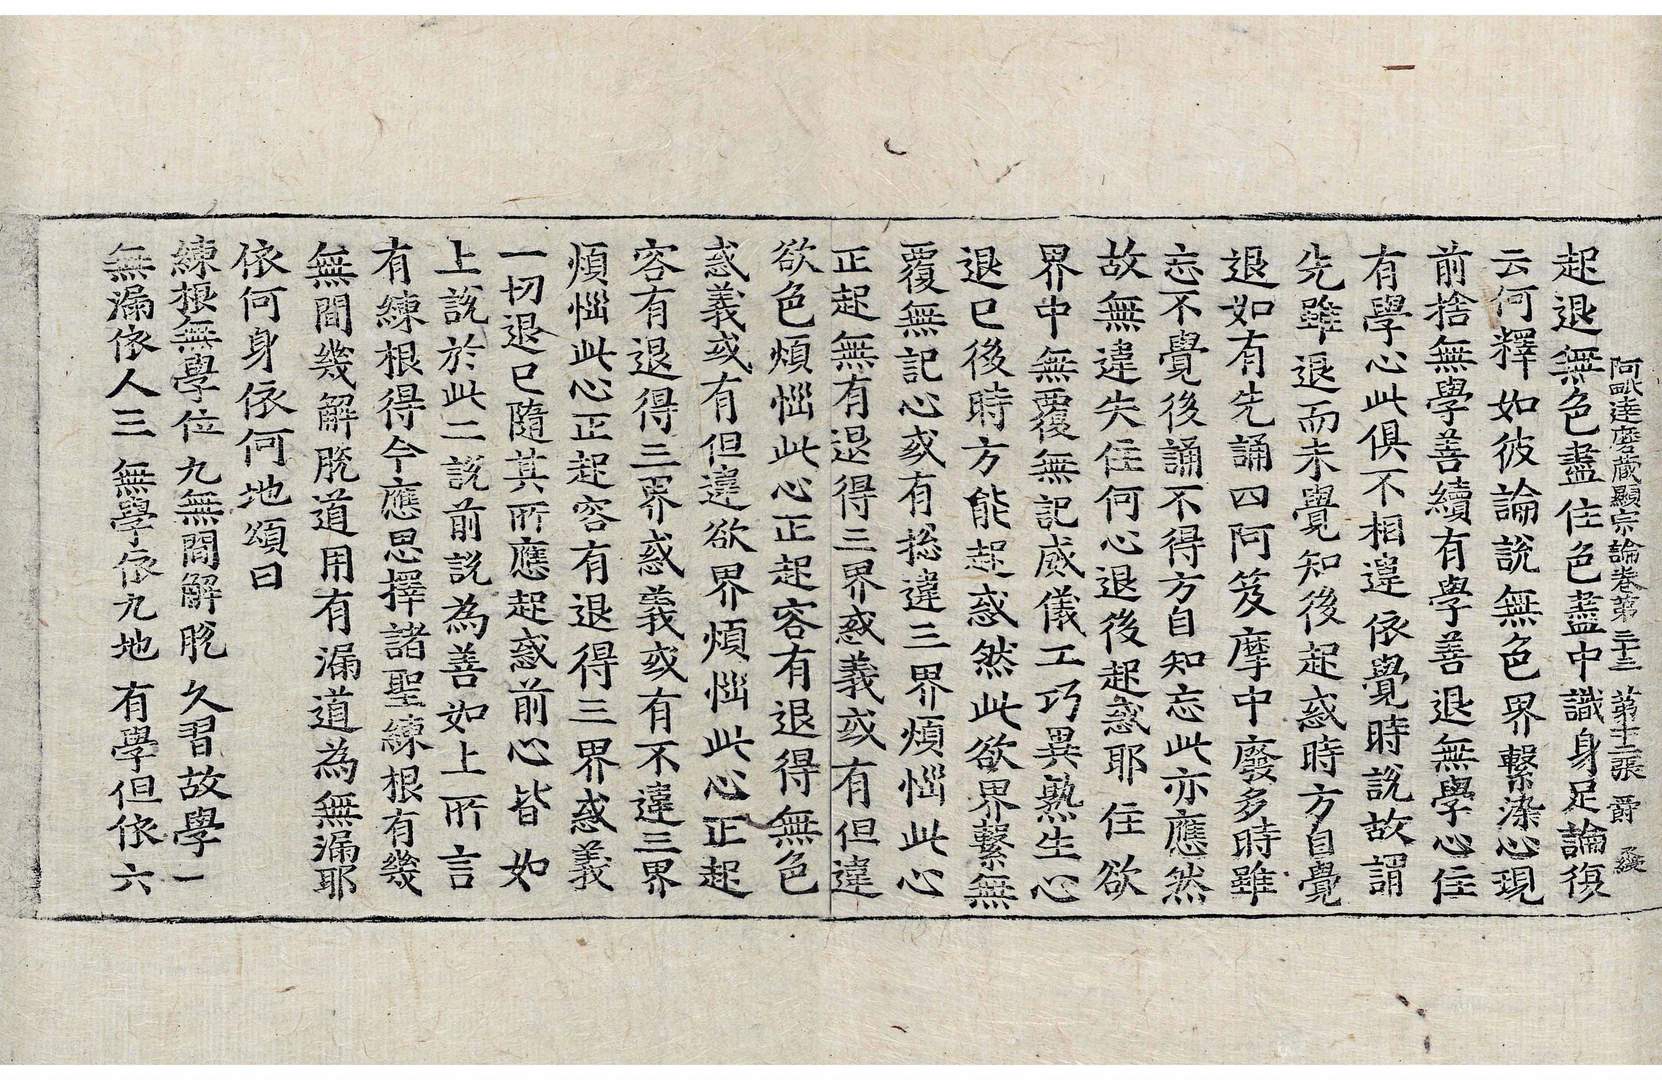 阿毗達磨藏顯宗論卷第三十三 第十二張 爵
起退無色盡住色盡中識身足論復
云何釋如彼論說無色界繫染心現
前捨無學善續有學善退無學心住
有學心此俱不相違依覺時說故謂
先雖退而未覺知後起惑時方自覺
退如有先誦四阿笈摩中廢多時雖
忘不覺後誦不得方自知忘此亦應然
故無違失住何心退後起惑耶住欲
界中無覆無記威儀工巧異熟生心
退已後時方能起惑然此欲界繫無
覆無記心或有揔違三界煩惱此心
正起無有退得三界惑義或有但違
欲色煩惱此心正起容有退得無色
惑義或有但違欲界煩惱此心正起
容有退得三界惑義或有不違三界
煩惱此心正起容有退得三界惑義
一切退已隨其所應起惑前心皆如
上說於此二說前說為善如上所言
有練根得今應思擇諸聖練根有幾
無間幾解脫道用有漏道為無漏耶
依何身依何地頌曰
練根無學位 九無間解脫 久習故學一
無漏依人三 無學依九地 有學但依六